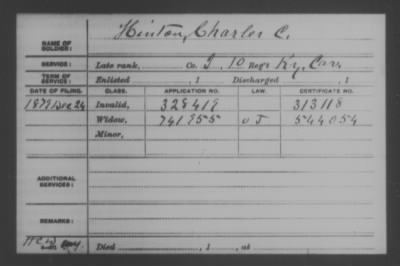 NAME OF SOLDIER: Hinton, Charles C.
SERVICE: Late rank, Co. I, 10 Reg't Ky. Cav.
TERM OF SERVICE: Enlisted , 1 Discharged , 1
DATE OF FILING. CLASS. APPLICATION NO. LAW. CERTIFICATE NO.
1879 Dec 24 Invalid, 328419 313118
Widow, 741955 O J 544054
Minor,
ADDITIONAL SERVICES:
REMARKS:
Died , 1 , at